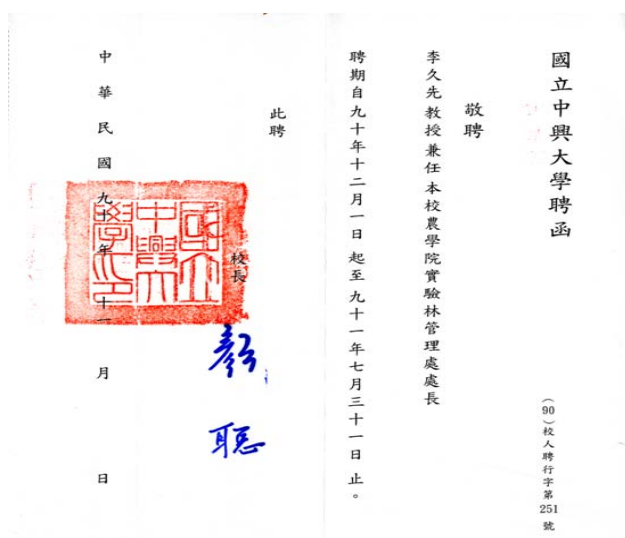 國立中興大學聘函
（90）校人聘行字第251號
敬聘
李久先教授兼任本校農學院實驗林管理處處長
聘期自九十年十二月一日起至九十一年七月三十一日止。
此聘
校長
顏聰
國立中興大學印
中華民國九十年十一月日